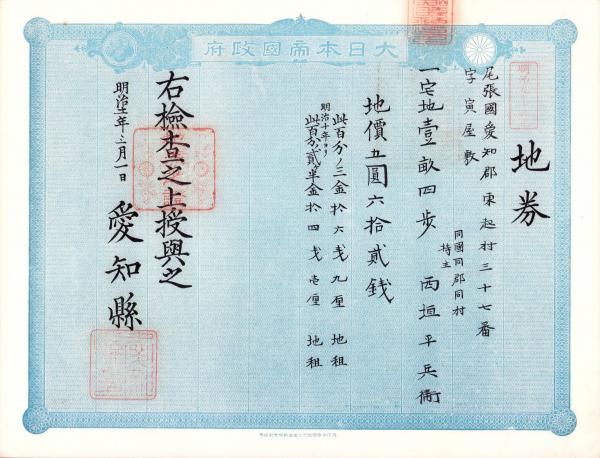 大日本帝國政府
地券
尾張國愛知郡東起村三十七番
字寅屋敷
一宅地壹畝四歩
同國同郡同村
持主
西垣平兵衛
地價五圓六拾貳銭
此百分ノ三金拾六戔九厘 地租
明治十年ヨリ
此百分ノ貳半金拾四戔壱厘 地租
右檢査之上授與之
明治十一年三月一日
愛知縣